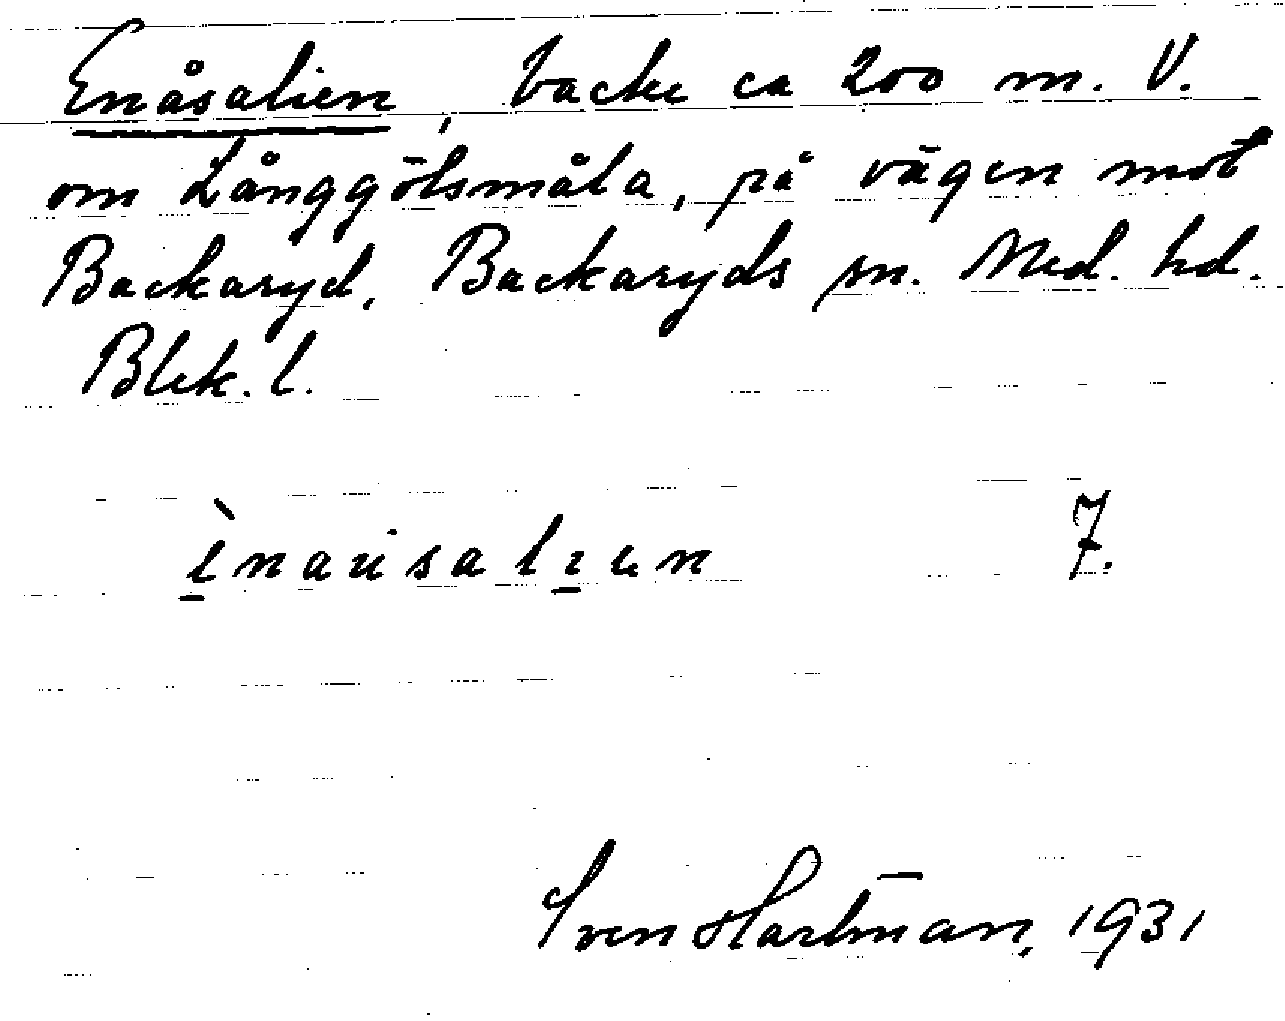 Enåsalien, backe ca 200 m. V.
om Långgölsmåla, på vägen mot
Backaryd. Backaryds sn. Med. hd.
Blek. l.
ènaüsalıen 7.
Sven Hartman, 1931